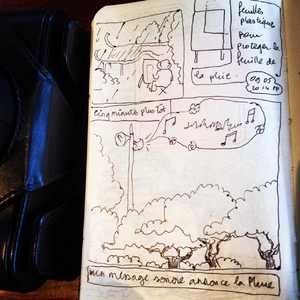 feuilles
plastique
pour
proteger la
feuille de
la pluie.
cinq minutes plus tôt
un message sonore annonce la Pluie